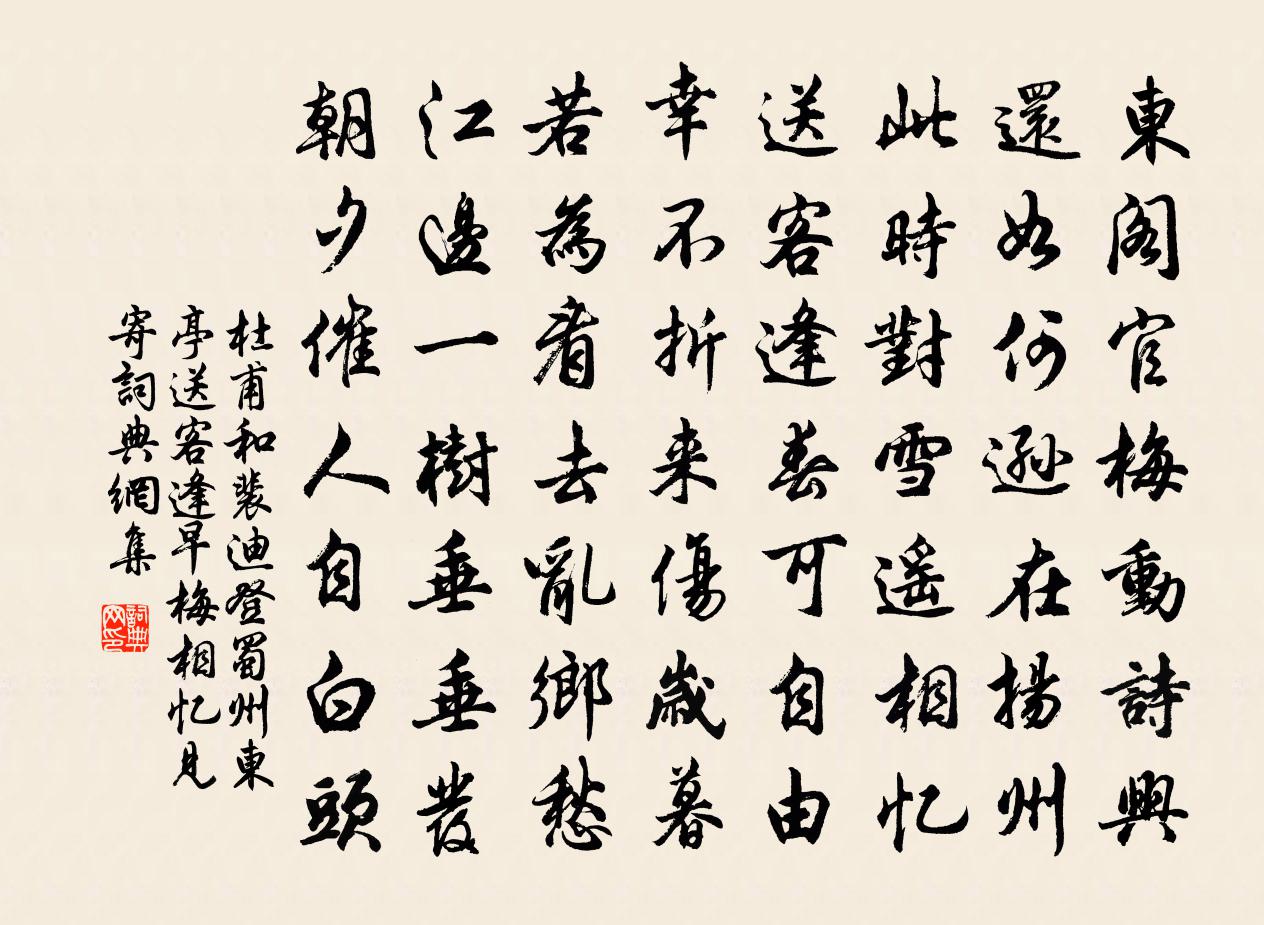 東閣官梅動詩興
還如何遜在揚州
此時對雪遥相忆
送客逢春可自由
幸不折来傷歲暮
若為看去亂鄉愁
江邊一樹垂垂發
朝夕催人自白頭
杜甫和裴迪登蜀州東
亭送客逢早梅相忆見
寄詞典網集
詞典网印